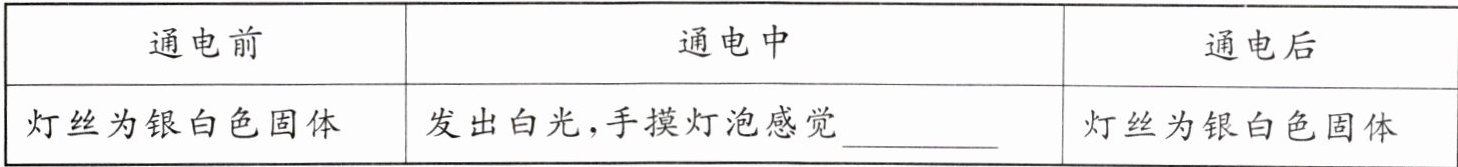 通电前 通电中 通电后
灯丝为银白色固体 发出白光,手摸灯泡感觉______ 灯丝为银白色固体